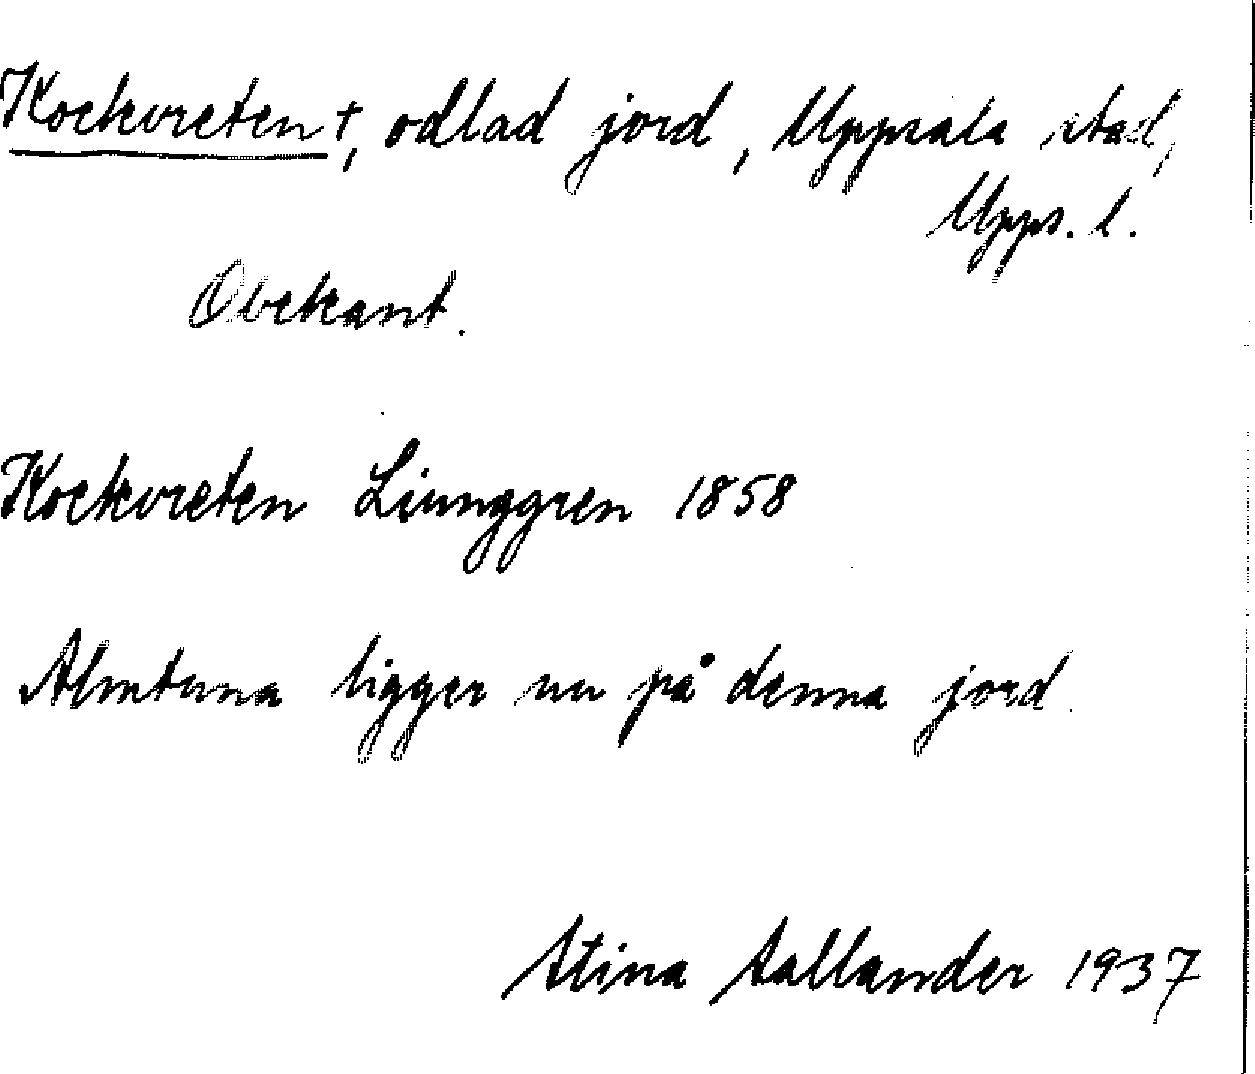 Kockvreten †, odlad jord, Uppsala stad,
Upps. l.
Obekant.
Kockvreten Liunggren 1858
Almtuna ligger nu på denna jord.
Stina Sallander 1937